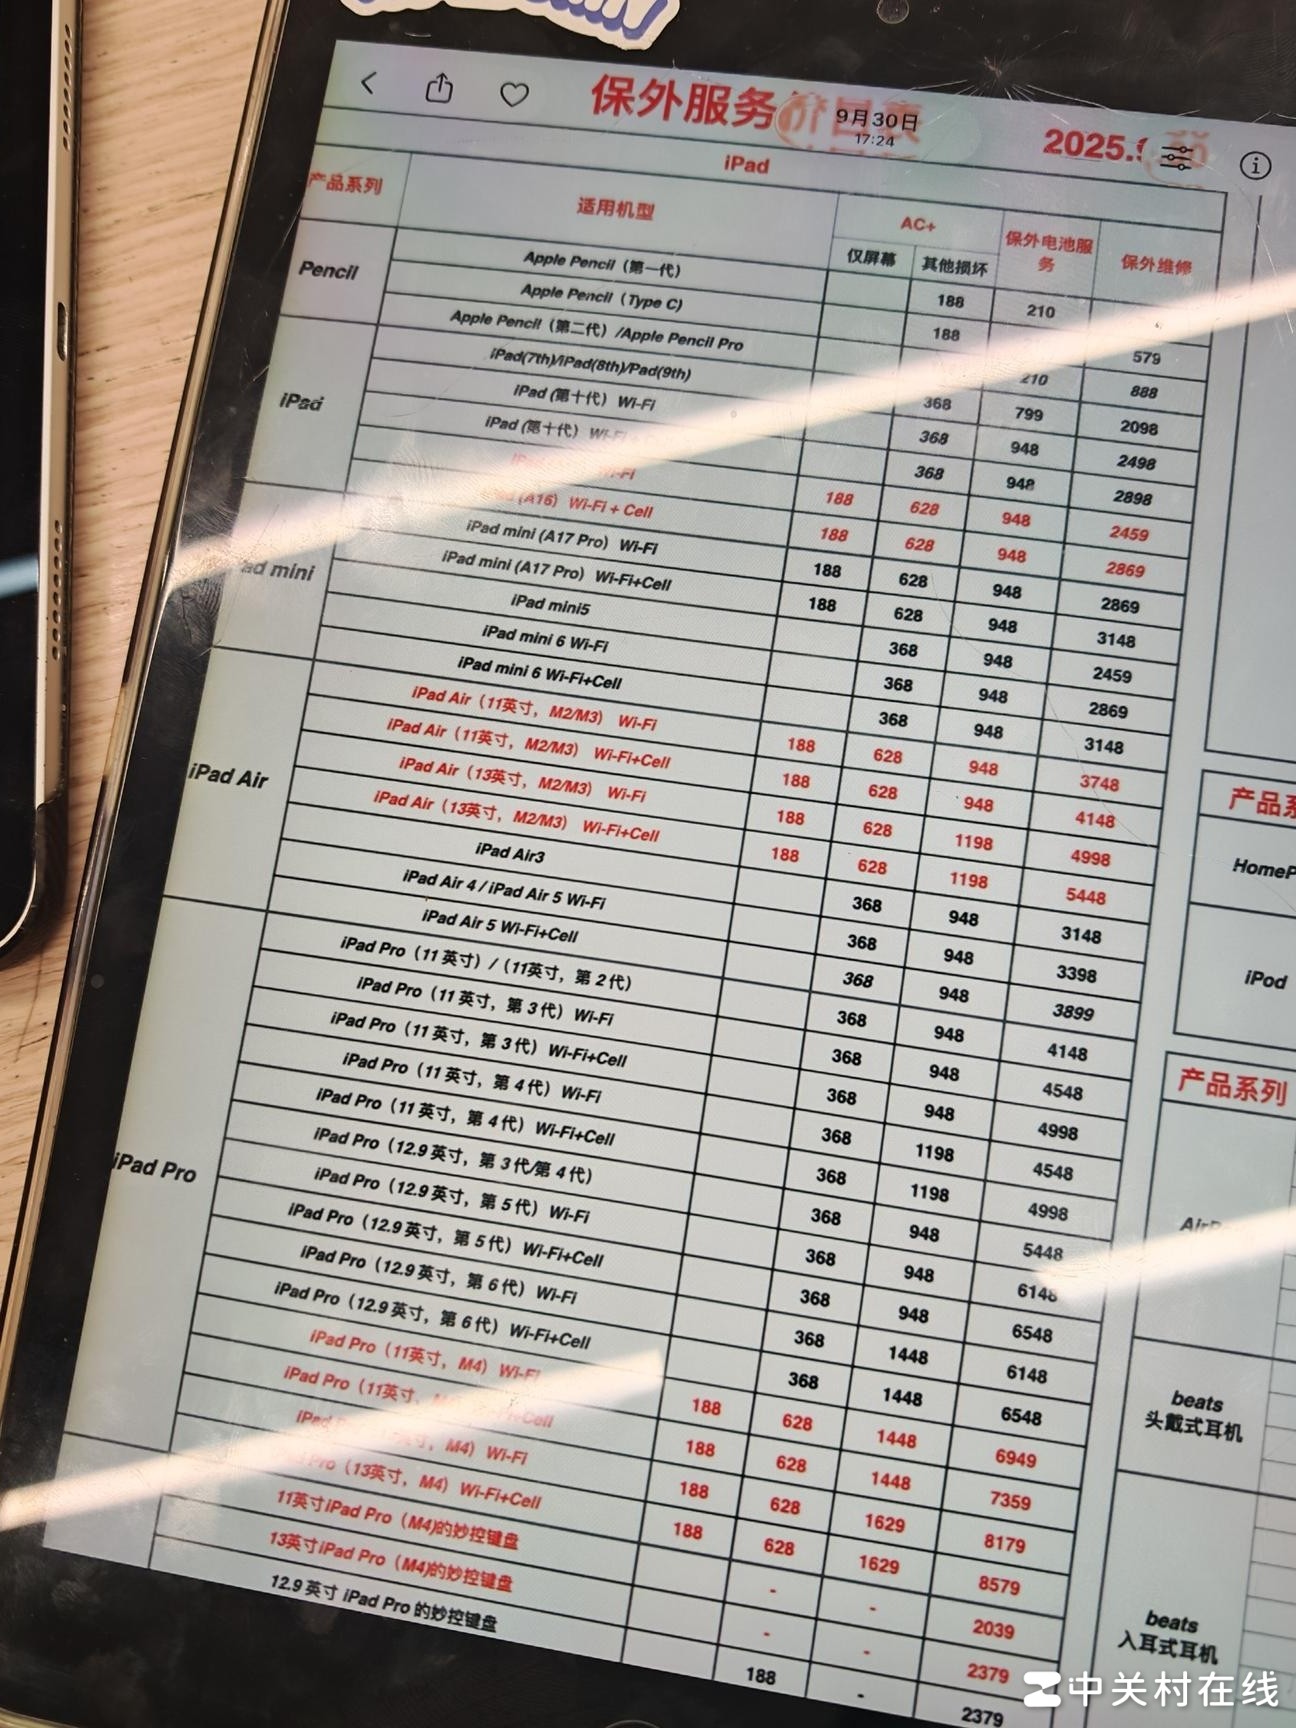 保外服务价目表
9月30日
17:24
2025.
iPad
产品系列 适用机型 AC+ 保外电池服务 保外维修
仅屏幕 其他损坏
Pencil
Apple Pencil（第一代） 188 210
Apple Pencil（Type C） 188 579
Apple Pencil（第二代）/Apple Pencil Pro 210 888
iPad
iPad(7th)/iPad(8th)/Pad(9th) 368 799 2098
iPad (第十代） Wi-Fi 368 948 2498
iPad (第十代） Wi-Fi 368 948 2898
Wi-Fi 188 628 948 2459
(A16） Wi-Fi + Cell 188 628 948 2869
ad mini
iPad mini (A17 Pro） Wi-Fi 188 628 948 2869
iPad mini (A17 Pro） Wi-Fi+Cell 188 628 948 3148
iPad mini5 368 948 2459
iPad mini 6 Wi-Fi 368 948 2869
iPad mini 6 Wi-Fi+Cell 368 948 3148
iPad Air
iPad Air（11英寸，M2/M3） Wi-Fi 188 628 948 3748
iPad Air（11英寸，M2/M3） Wi-Fi+Cell 188 628 948 4148
iPad Air（13英寸，M2/M3） Wi-Fi 188 628 1198 4998
iPad Air（13英寸，M2/M3） Wi-Fi+Cell 188 628 1198 5448
iPad Air3 368 948 3148
iPad Air 4 / iPad Air 5 Wi-Fi 368 948 3398
iPad Air 5 Wi-Fi+Cell 368 948 3899
iPad Pro
iPad Pro（11 英寸）/（11英寸，第 2 代） 368 948 4148
iPad Pro（11 英寸，第 3 代） Wi-Fi 368 948 4548
iPad Pro（11 英寸，第 3 代） Wi-Fi+Cell 368 948 4998
iPad Pro（11 英寸，第 4 代） Wi-Fi 368 1198 4548
iPad Pro（11 英寸，第 4 代） Wi-Fi+Cell 368 1198 4998
iPad Pro（12.9 英寸，第 3 代/第 4 代） 368 948 5448
iPad Pro（12.9 英寸，第 5 代） Wi-Fi 368 948 6148
iPad Pro（12.9 英寸，第 5 代） Wi-Fi+Cell 368 948 6548
iPad Pro（12.9 英寸，第 6 代） Wi-Fi 368 1448 6148
iPad Pro（12.9 英寸，第 6 代） Wi-Fi+Cell 368 1448 6548
iPad Pro（11英寸，M4）Wi-Fi 188 628 1448 6949
iPad Pro（11英寸， 188 628 1448 7359
M4） Wi-Fi 188 628 1629 8179
（13英寸，M4） Wi-Fi+Cell 188 628 1629 8579
11英寸iPad Pro（M4)的妙控键盘 - - 2039
13英寸iPad Pro（M4)的妙控键盘 - - 2379
12.9 英寸 iPad Pro 的妙控键盘 188 - 2379
产品系
HomeP
iPod
产品系列
beats
头戴式耳机
beats
入耳式耳机
中关村在线